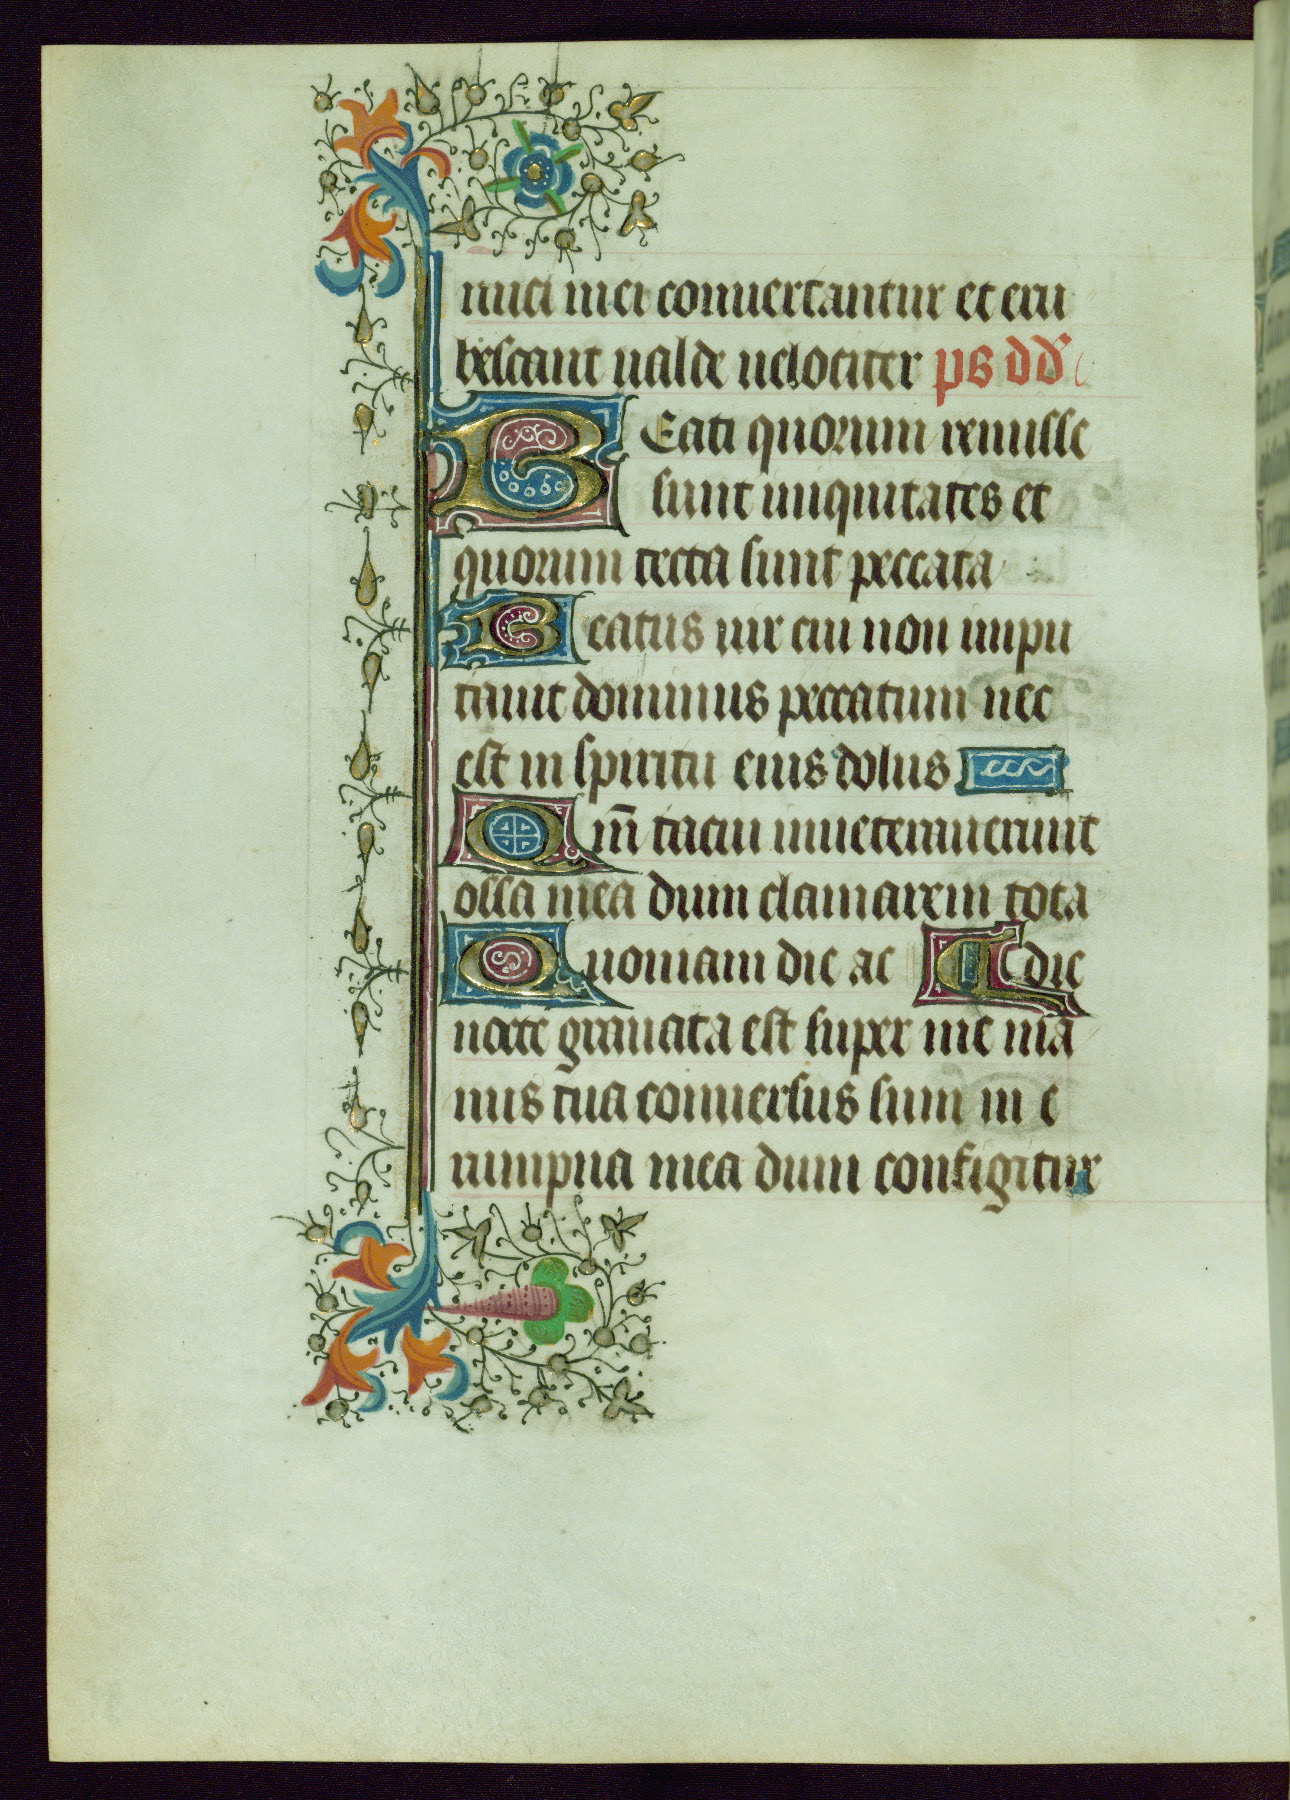 mici mei conuertantur et eru
bescant ualde uelociter ps dd
BEati quorum remisse
sunt iniquitates et
quorum tecta sunt peccata
Beatus uir cui non impu
tauit dominus peccatum nec
est in spiritu eius dolus
Qm̄ tacui inueterauerunt
ossa mea dum clamarem tota
Quoniam die ac die
nocte grauata est super me ma
nus tua conuersus sum in e
rumpna mea dum configitur